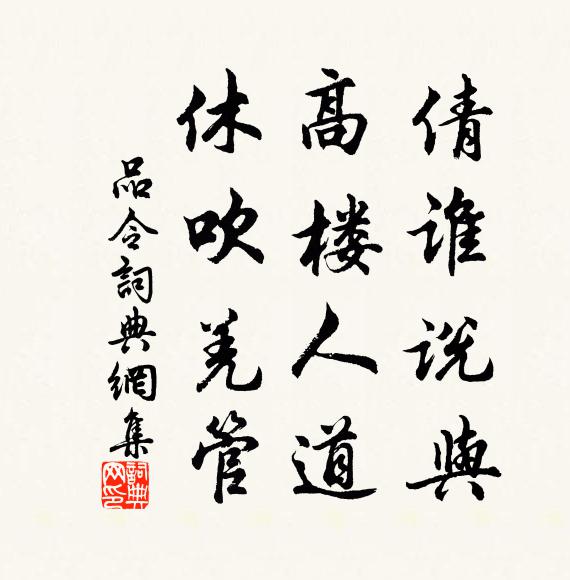 倩谁説與
髙楼人道
休吹羌管
品令詞典網集
詞典网印